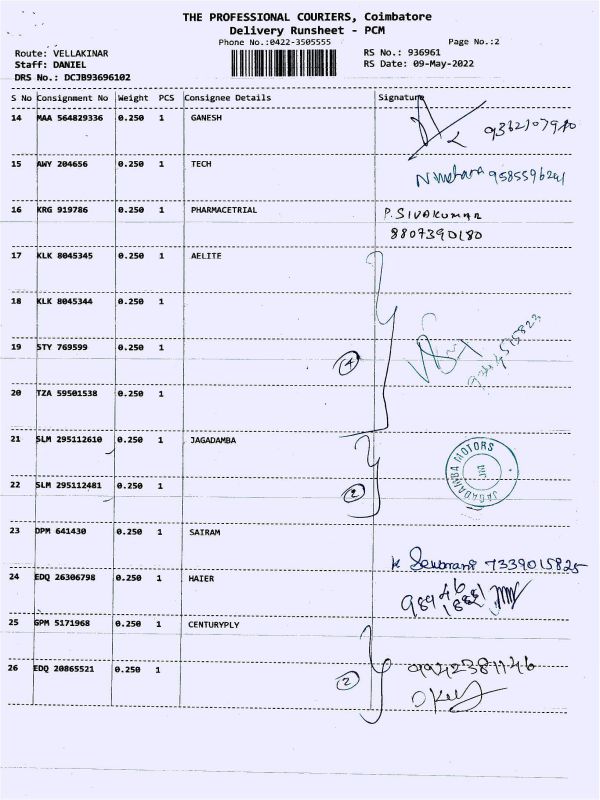 THE PROFESSIONAL COURIERS, Coimbatore
Delivery Runsheet - PCM
Phone No.:0422-3505555
Page No.:2
Route: VELLAKINAR
RS No.: 936961
Staff: DANIEL
RS Date: 09-May-2022
DRS No.: DCJB93696102
S No Consignment No Weight PCS Consignee Details Signature
14 MAA 564829336 0.250 1 GANESH
15 AWY 204656 0.250 1 TECH
9585596241
16 KRG 919786 0.250 1 PHARMACETRIAL P.SIVAKUMAR
8807390180
17 KLK 8045345 0.250 1 AELITE
18 KLK 8045344 0.250 1
19 STY 769599 0.250 1
4
20 TZA 59501538 0.250 1
21 SLM 295112610 0.250 1 JAGADAMBA
JAGADAMBA MOTORS
22 SLM 295112481 0.250 1
2
23 DPM 641430 0.250 1 SAIRAM
7339015825
24 EDQ 26306798 0.250 1 HAIER
25 GPM 5171968 0.250 1 CENTURYPLY
26 EDQ 20865521 0.250 1
2
9942381146